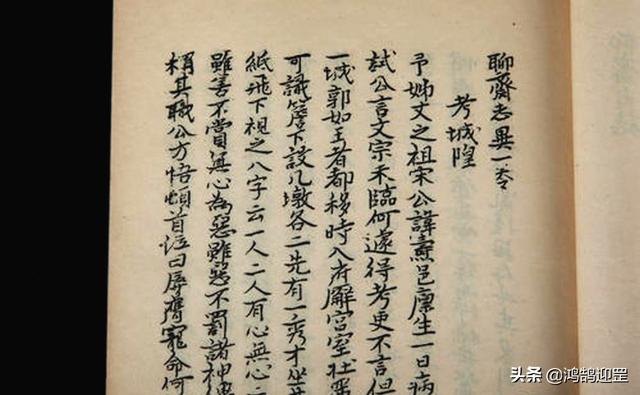 聊齋志異一卷
考城隍
予姊丈之祖宋公諱燾邑廩生一日病
試公言文宗未臨何遽得考吏不言但
一城郭如王者都移時入府廨宮室壯
可識簷下設几墩各二先有一秀才坐其
紙飛下視之八字云一人二人有心無心二
雖善不賞無心為惡雖惡不罰諸神傳
稱其職公方悟頓首泣曰辱膺寵命何
头条 @鸿鹄迎罡